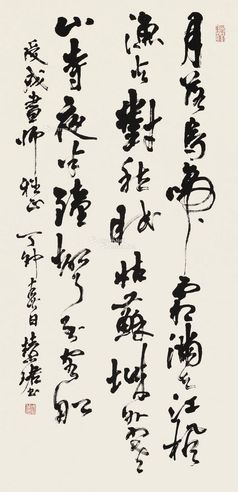 月落烏啼霜滿天江楓
漁火對愁眠姑蘇城外寒
山寺夜半鐘聲到客船
畫師 雅正 丁卯 日